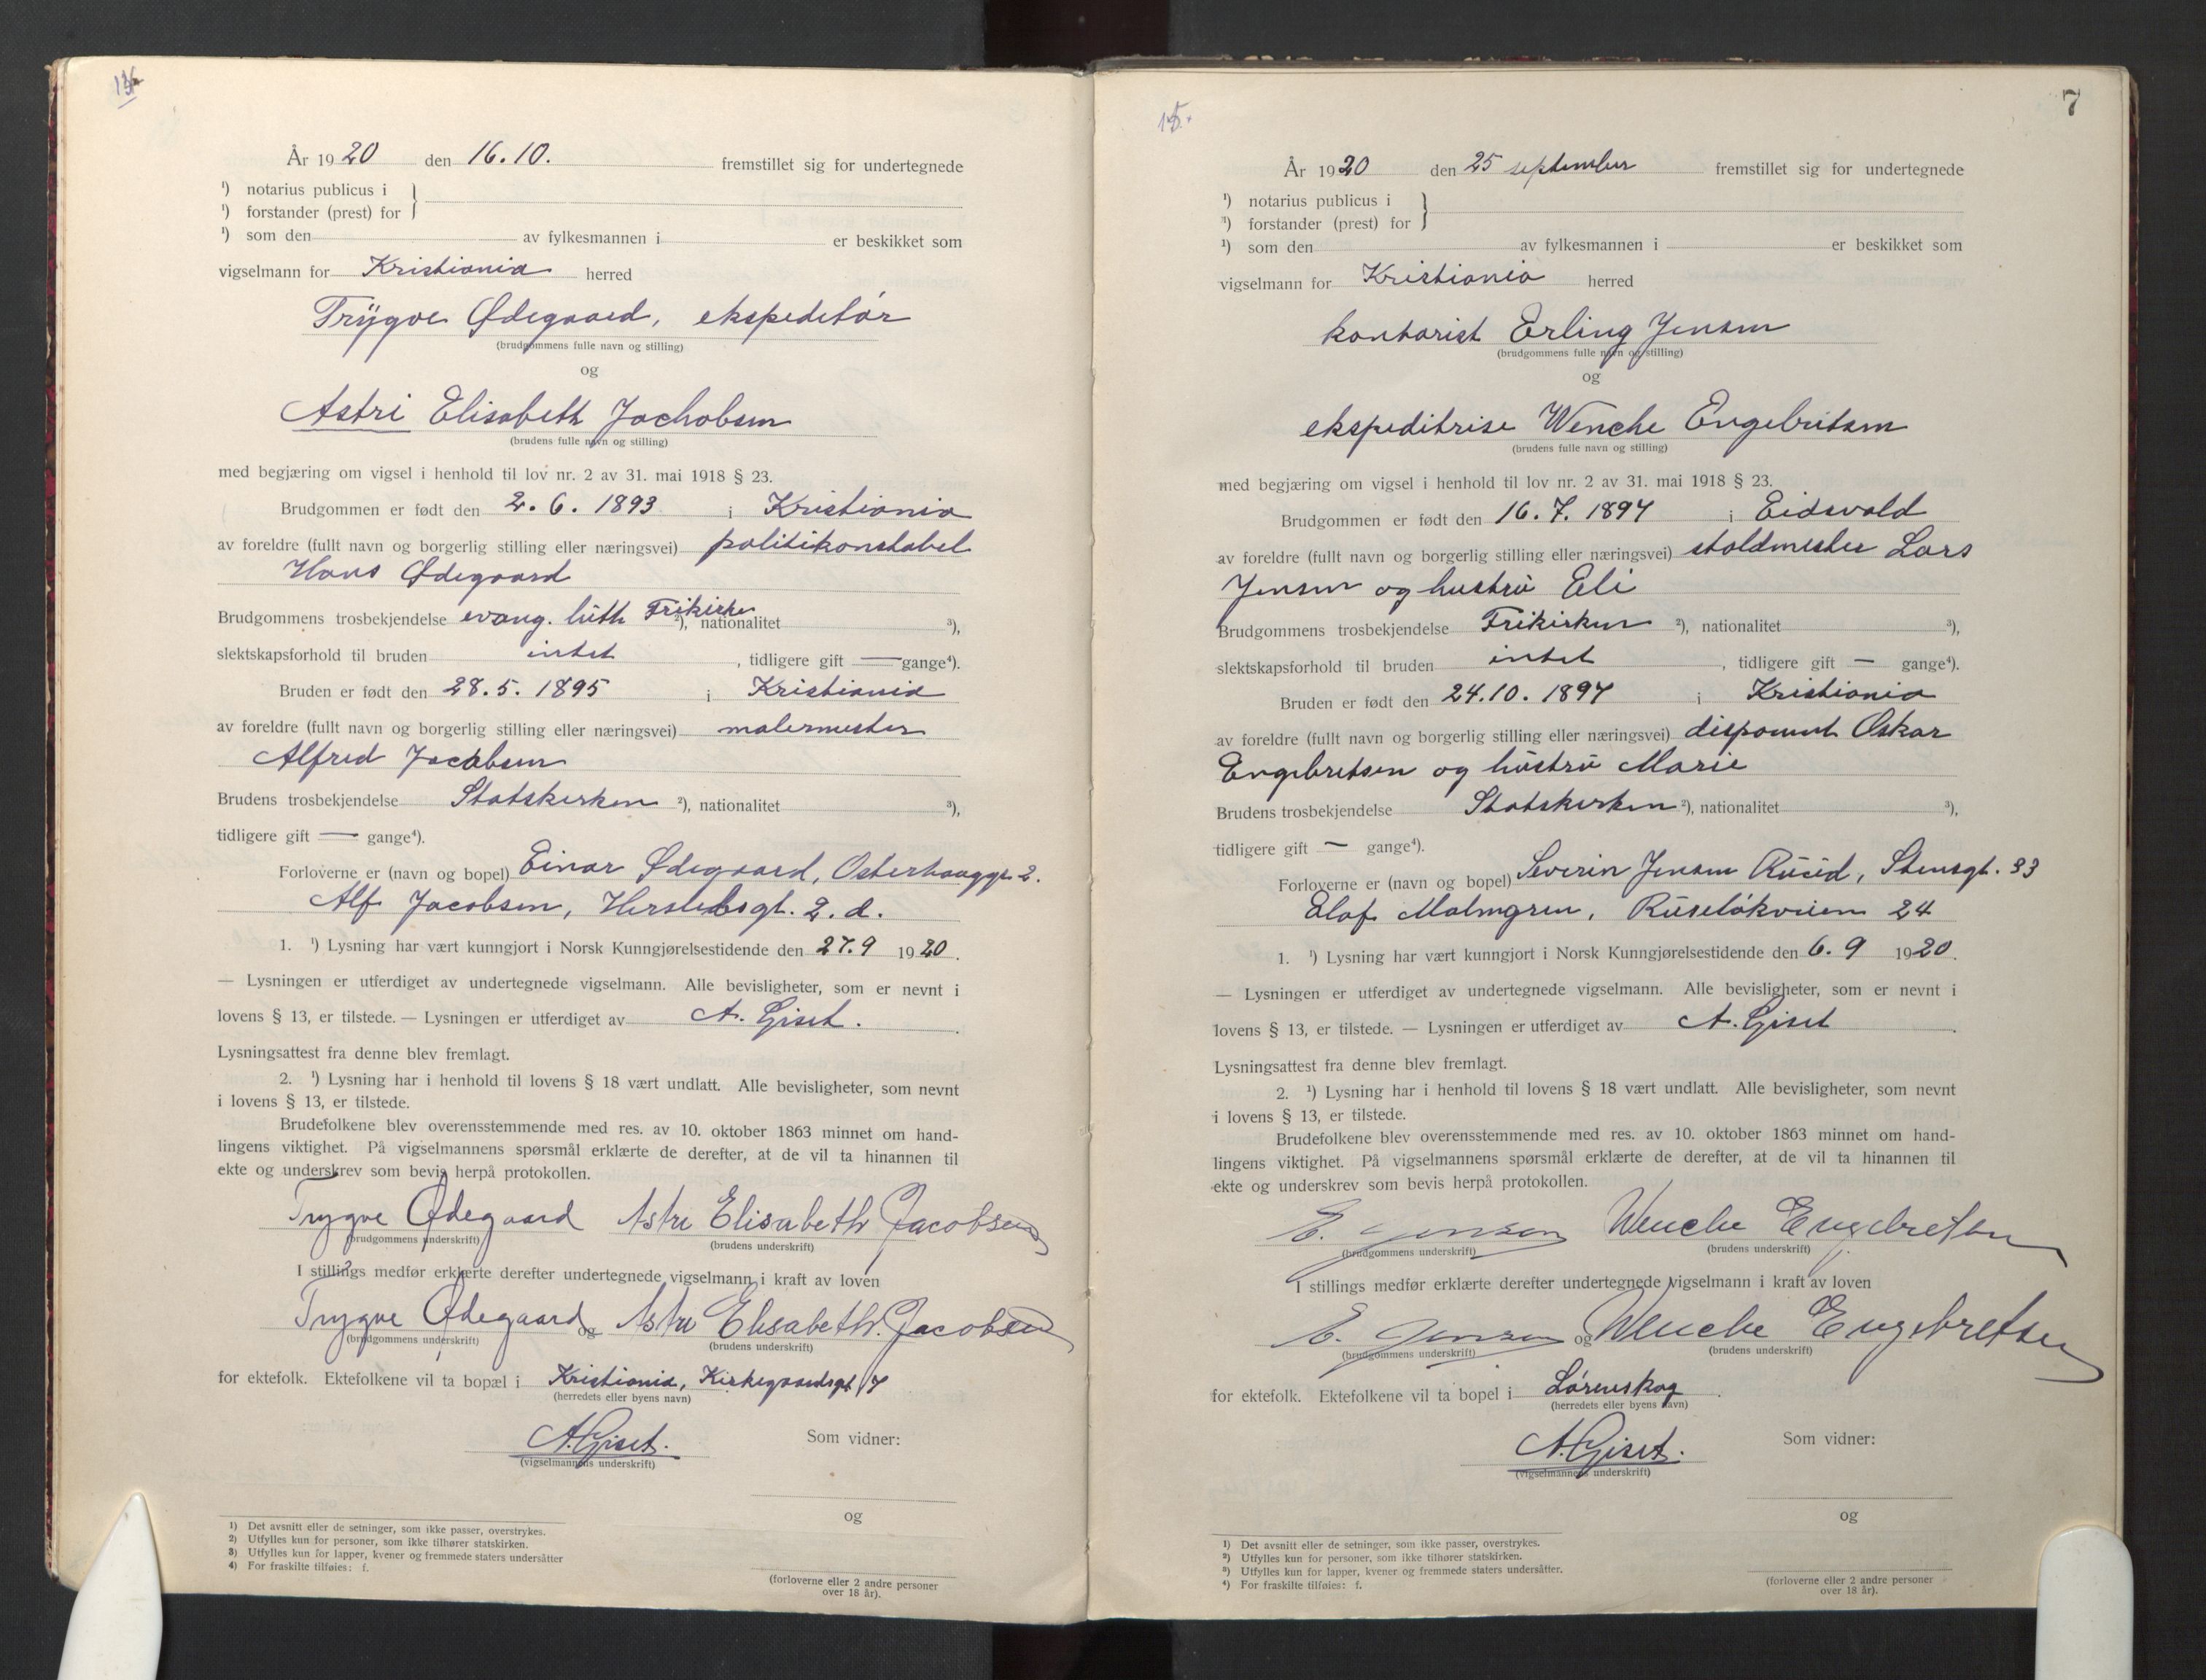 År 1920 den 16.10. fremstillet sig for undertegnede
¹) notarius publicus i
¹) forstander (prest) for }
¹) som den av fylkesmannen i er beskikket som
vigselmann for Kristiania herred
Trygve Ødegaard, ekspeditør
(brudgommens fulle navn og stilling)
og
Astri Elisabeth Jachobsen
(brudens fulle navn og stilling)
med begjæring om vigsel i henhold til lov nr. 2 av 31. mai 1918 § 23.
Brudgommen er født den 2.6.1893 i Kristiania
av foreldre (fullt navn og borgerlig stilling eller næringsvei) politikonstabel
Hans Ødegaard
Brudgommens trosbekjendelse evang. luth Frikirke ²), nationalitet ³),
slektskapsforhold til bruden intet, tidligere gift — gange⁴).
Bruden er født den 28.5.1895 i Kristiania
av foreldre (fullt navn og borgerlig stilling eller næringsvei) malermester
Alfred Jacobsen
Brudens trosbekjendelse Statskirken ²), nationalitet ³),
tidligere gift — gange⁴).
Forloverne er (navn og bopel) Einar Ødegaard, Osterhausgt 2.
Alf Jacobsen, Herslebsgt. 2.d.
1. ¹) Lysning har vært kunngjort i Norsk Kunngjørelsestidende den 27.9 1920.
— Lysningen er utferdiget av undertegnede vigselmann. Alle bevisligheter, som er nevnt i
lovens § 13, er tilstede. — Lysningen er utferdiget av A. Giset.
Lysningsattest fra denne blev fremlagt.
2. ¹) Lysning har i henhold til lovens § 18 vært undlatt. Alle bevisligheter, som nevnt
i lovens § 13, er tilstede.
Brudefolkene blev overensstemmende med res. av 10. oktober 1863 minnet om hand-
lingens viktighet. På vigselmannens spørsmål erklærte de derefter, at de vil ta hinannen til
ekte og underskrev som bevis herpå protokollen.
Trygve Ødegaard Astri Elisabeth Jacobsen
(brudgommens underskrift) (brudens underskrift)
I stillings medfør erklærte derefter undertegnede vigselmann i kraft av loven
Trygve Ødegaard og Astri Elisabeth Jacobsen
(brudgommens underskrift) (brudens underskrift)
for ektefolk. Ektefolkene vil ta bopæl i Kristiania, Kirkegaardsgt 7
(herredets eller byens navn)
A. Giset. Som vidner:
(vigselmannens underskrift)
og
1) Det avsnitt eller de setninger, som ikke passer, overstrykes.
2) Utfylles kun for personer, som ikke tilhører statskirken.
3) Utfylles kun for lapper, kvener og fremmede staters undersåtter
4) For fraskilte tilføies: f.
(forloverne eller 2 andre personer
over 18 år).
15.
7
År 1920 den 25 september fremstillet sig for undertegnede
¹) notarius publicus i
¹) forstander (prest) for }
¹) som den av fylkesmannen i er beskikket som
vigselmann for Kristiania herred
kontorist Erling Jensen
(brudgommens fulle navn og stilling)
og
ekspeditrise Wenche Engebretsen
(brudens fulle navn og stilling)
med begjæring om vigsel i henhold til lov nr. 2 av 31. mai 1918 § 23.
Brudgommen er født den 16.7.1897 i Eidsvold
av foreldre (fullt navn og borgerlig stilling eller næringsvei) staldmester Lars
Jensen og hustru Eli
Brudgommens trosbekjendelse Frikirken ²), nationalitet ³),
slektskapsforhold til bruden intet, tidligere gift — gange⁴).
Bruden er født den 24.10.1897 i Kristiania
av foreldre (fullt navn og borgerlig stilling eller næringsvei) disponent Oskar
Engebretsen og hustru Marie
Brudens trosbekjendelse Statskirken ²), nationalitet ³),
tidligere gift — gange⁴).
Forloverne er (navn og bopel) Severin Jensen Stensgt. 33
Olaf Malmgren, Ruseløkveien 24
1. ¹) Lysning har vært kunngjort i Norsk Kunngjørelsestidende den 6.9 1920.
— Lysningen er utferdiget av undertegnede vigselmann. Alle bevisligheter, som er nevnt i
lovens § 13, er tilstede. — Lysningen er utferdiget av A. Giset.
Lysningsattest fra denne blev fremlagt.
2. ¹) Lysning har i henhold til lovens § 18 vært undlatt. Alle bevisligheter, som nevnt
i lovens § 13, er tilstede.
Brudefolkene blev overensstemmende med res. av 10. oktober 1863 minnet om hand-
lingens viktighet. På vigselmannens spørsmål erklærte de derefter, at de vil ta hinannen til
ekte og underskrev som bevis herpå protokollen.
E. Jensen Wenche Engebretsen
(brudgommens underskrift) (brudens underskrift)
I stillings medfør erklærte derefter undertegnede vigselmann i kraft av loven
E. Jensen og Wenche Engebretsen
(brudgommens underskrift) (brudens underskrift)
for ektefolk. Ektefolkene vil ta bopel i Lørenskog.
(herredets eller byens navn)
A. Giset. Som vidner:
(vigselmannens underskrift)
og
1) Det avsnitt eller de setninger, som ikke passer, overstrykes.
²) Utfylles kun for personer, som ikke tilhører statskirken.
³) Utfylles kun for lapper, kvener og fremmede staters undersåtter.
⁴) For fraskilte tilføies: f.
(forloverne eller 2 andre personer
over 18 år).